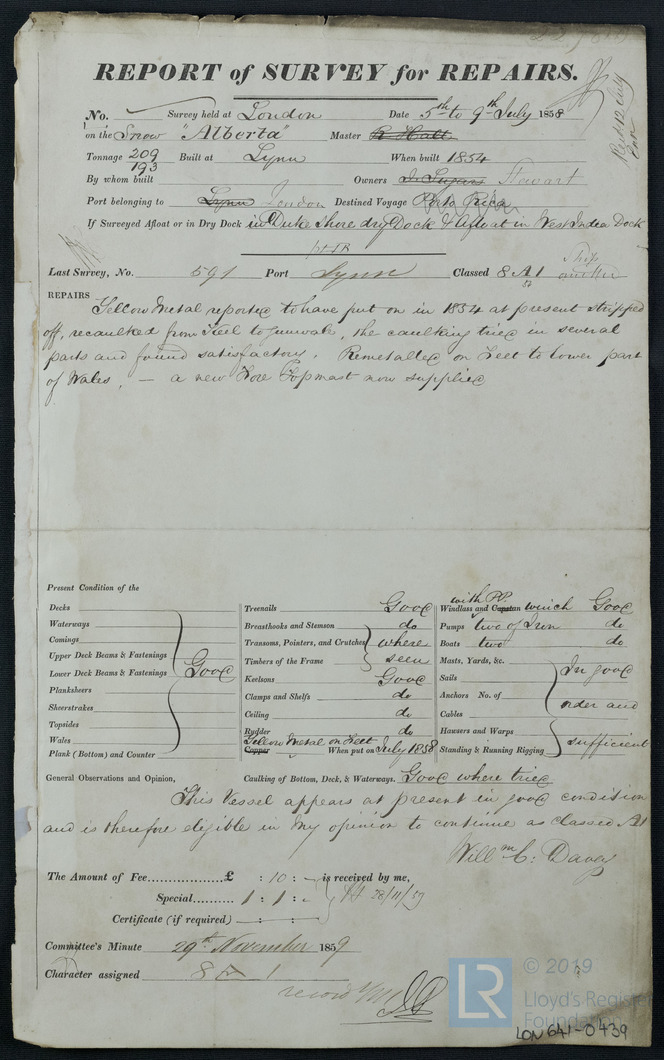 REPORT of SURVEY for REPAIRS.
No. Survey held at London Date 5th to 9th July 1858
on the Snow "Alberta" Master R Hall
Tonnage 209 193 Built at Lynn When built 1854
By whom built Owners Stewart
Port belonging to Lynn London Destined Voyage Porto Rico
If Surveyed Afloat or in Dry Dock in Duke Shore dry Dock & Afloat in West India Dock
Last Survey, No. 591 Port Lynn Classed 8 A 1
REPAIRS Yellow Metal reported to have put on in 1854 at present stripped
off, recaulked from Keel to Gunwale, the caulking tried in several
parts and found satisfactory. Remetalled on Felt to lower part
of Wales, — a new Fore Topmast now supplied
Present Condition of the
Decks
Waterways
Comings
Upper Deck Beams & Fastenings
Lower Deck Beams & Fastenings Good
Planksheers
Sheerstrakes
Topsides
Wales
Plank (Bottom) and Counter
Treenails Good
Breasthooks and Stemson do
Transoms, Pointers, and Crutches where
Timbers of the Frame seen
Keelsons Good
Clamps and Shelfs do
Ceiling do
Rudder do
Yellow Metal on Felt
Copper When put on July 1858
with PP.
Windlass and Capstan winch Good
Pumps two of Iron do
Boats two do
Masts, Yards, &c. In good
Sails
Anchors No. of order and
Cables
Hausers and Warps sufficient
Standing & Running Rigging
General Observations and Opinion, Caulking of Bottom, Deck, & Waterways. Good where tried
This Vessel appears at present in good condition
and is therefore eligible in my opinion to continue as classed A1
Willm C: Davey
The Amount of Fee £ : 10 : - is received by me,
Special 1 : 1 : - 28/11/59
Certificate (if required)
Committee's Minute 29th November 1859
Character assigned 8 A 1
LR © 2019
Lloyd's Register
Foundation
LON 641-0439